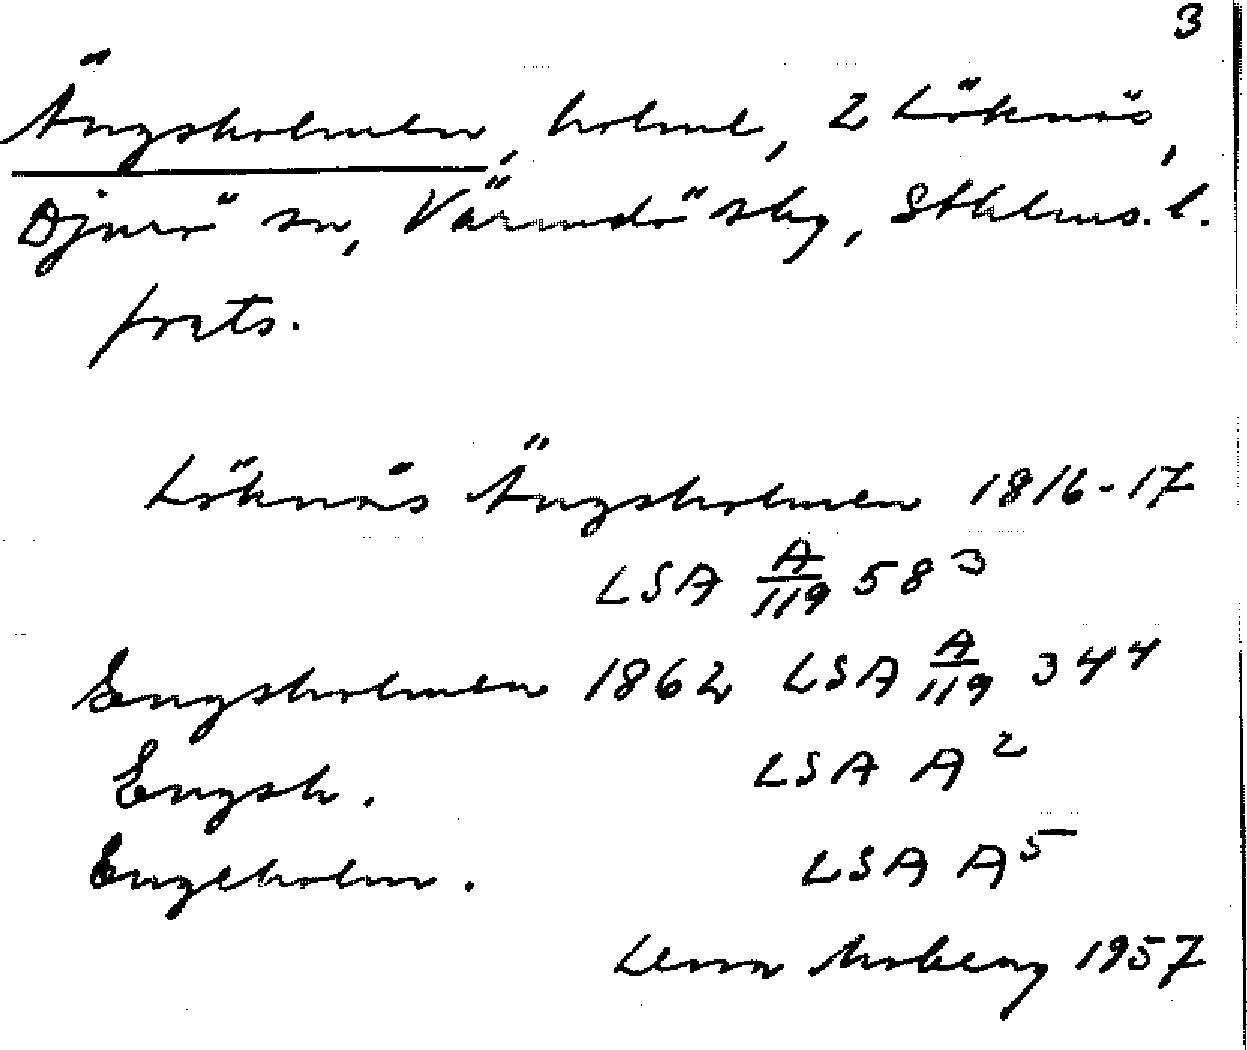 3
Ängsholmen, holme, 2 Löknäs,
Djurö sn, Värmdö sbg, Sthlms. l.
forts.
Löknäs Ängsholmen 1816-17
LSA A/119 58³
Engsholmen 1862 LSA A/119 344
Engsh. LSA A²
Engeholm. LSA A⁵
Lena Moberg 1957